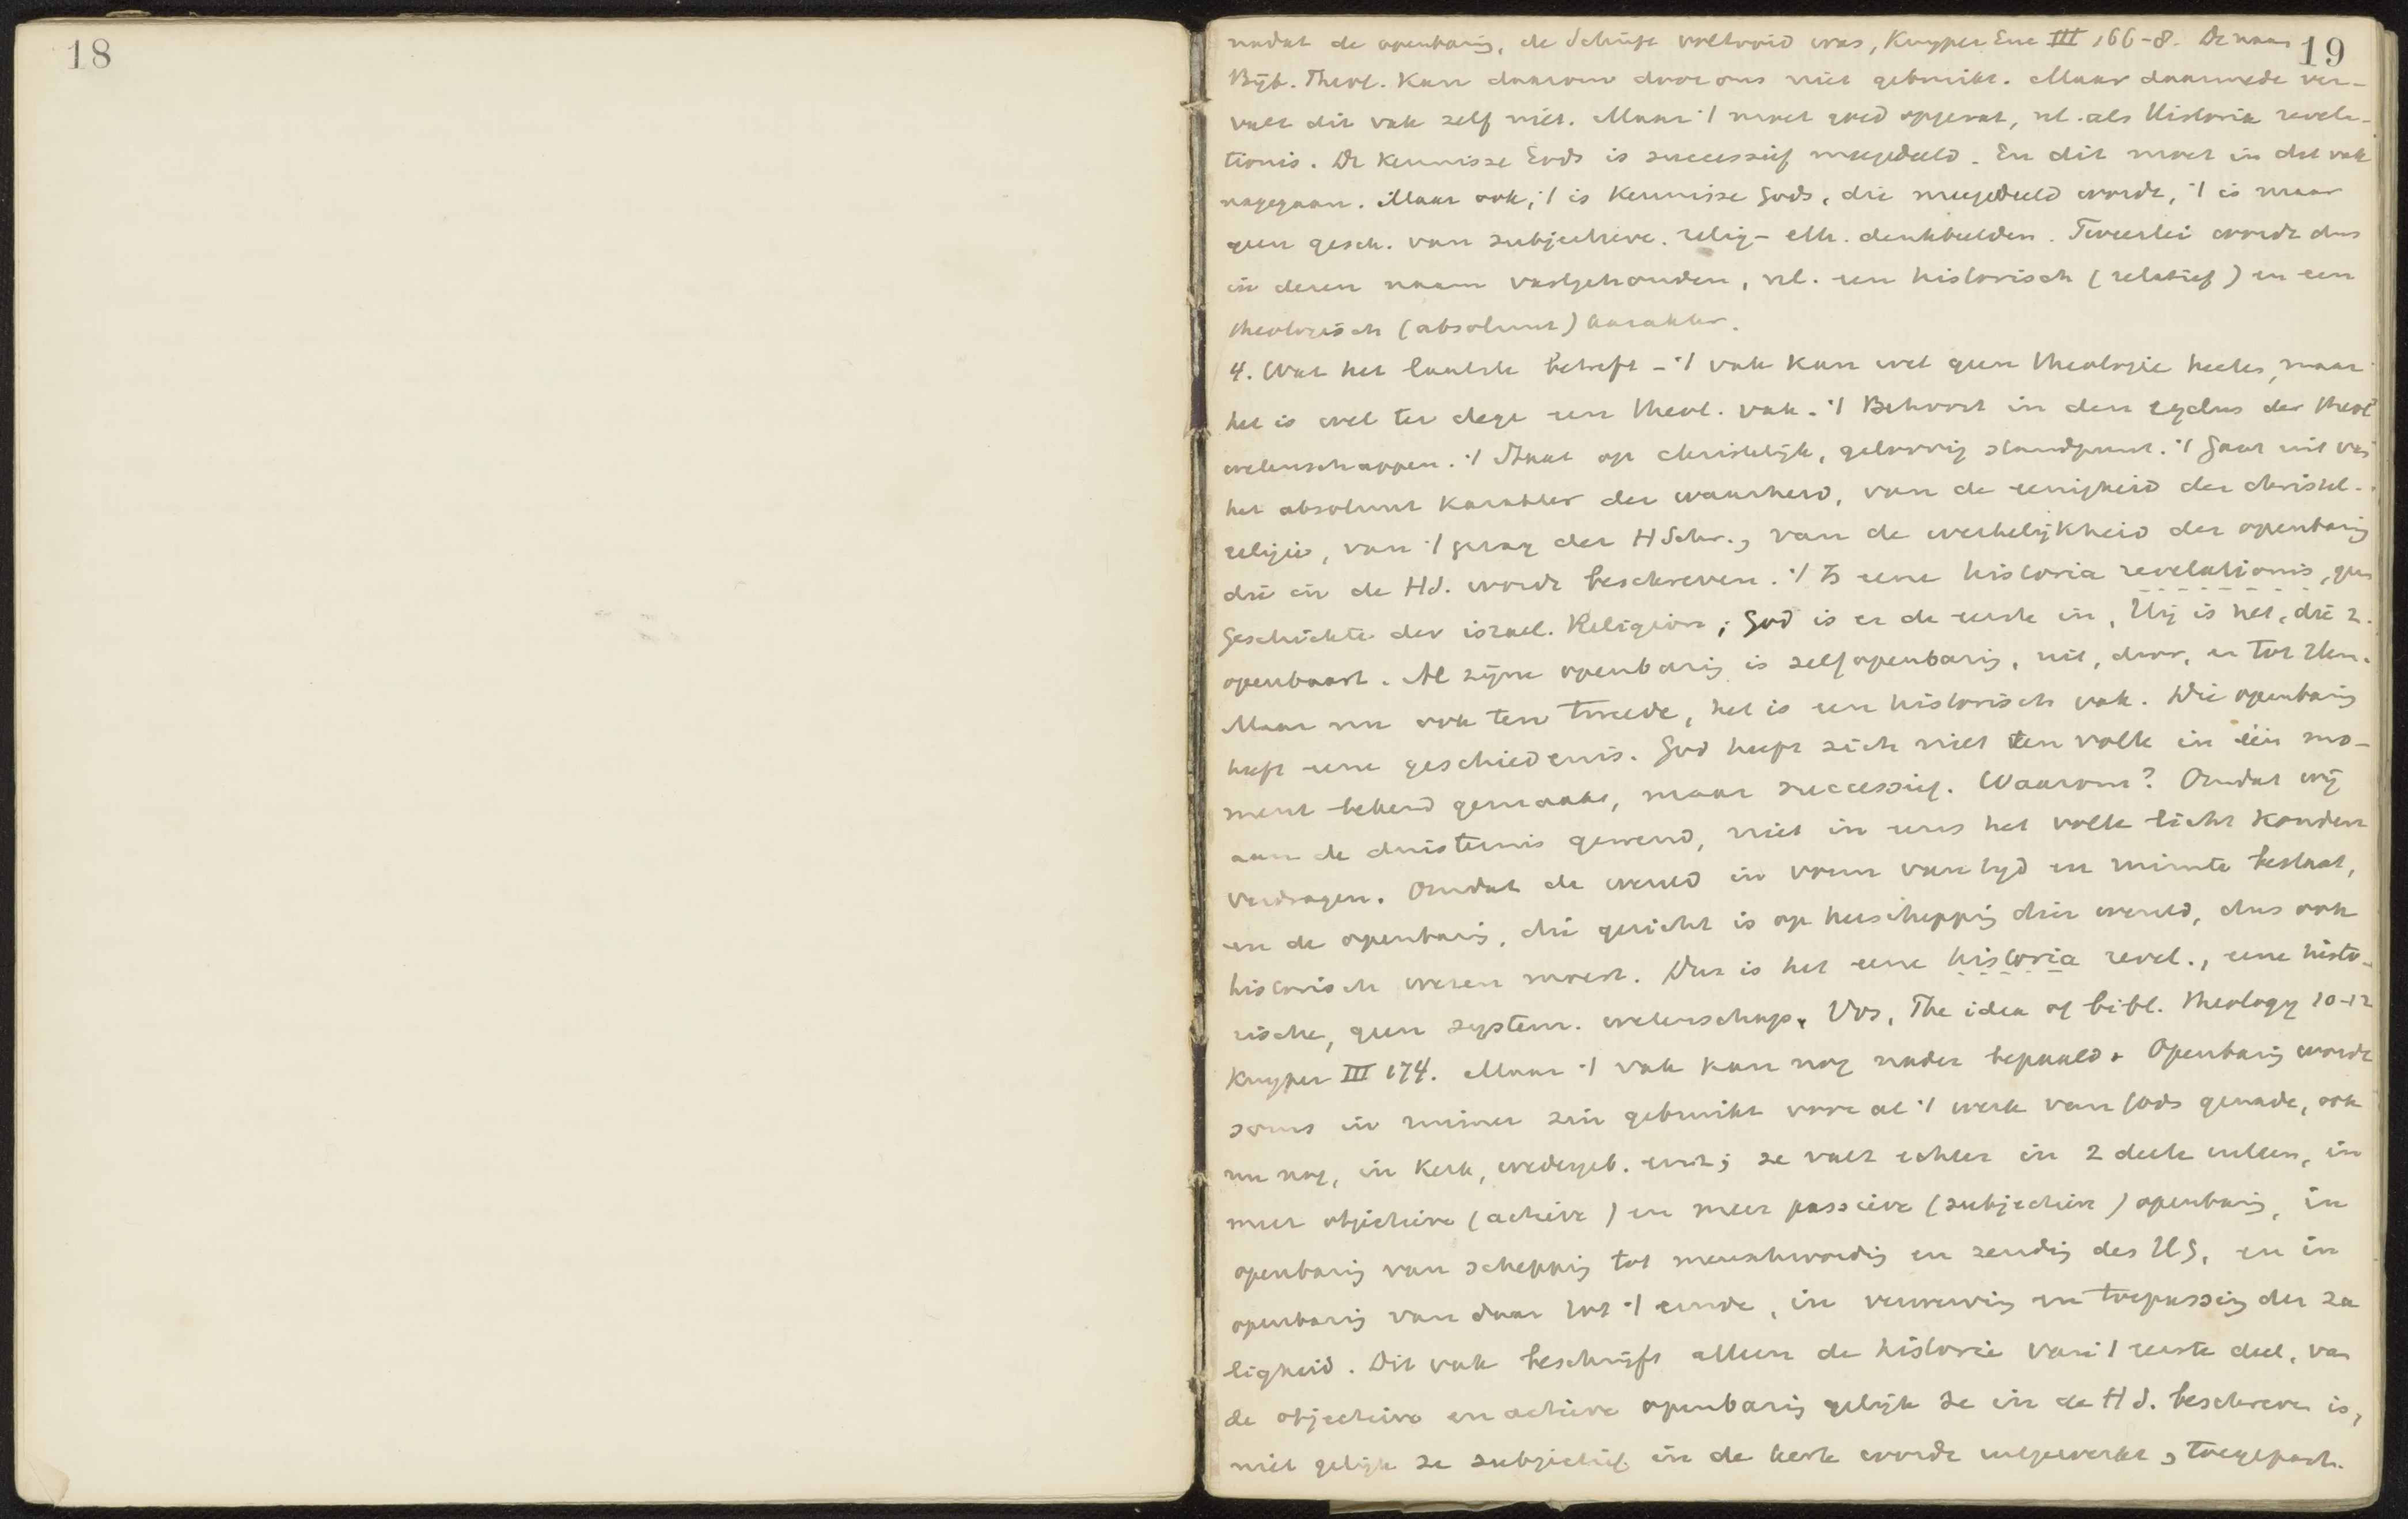 18
19
nadat de openbaring, de Schrift voltooid was, Kuyper Enc III 166-8. De naam
Bijb. Theol. kan daarom door ons niet gebruikt. Maar daarmede ver-
valt dit vak zelf niet. Maar 't moet goed opgevat, nl. als Historia revela-
tionis. De kennisse Gods is successief meegedeeld. En dit moet in dit vak
nagegaan. Maar ook, 't is kennisse Gods, die meegedeeld wordt, 't is maar
geen gesch. van subjectieve. relig-eth. denkbeelden. Tweeërlei wordt dus
in dezen naam vastgehouden, nl. een historisch (relatief) en een
theologisch (absoluut) karakter.
4. Wat het laatste betreft - 't vak kan wel geen theologie heeten, maar
het is wel ter dege een theol. vak. 't Behoort in den cyclus der theol
wetenschappen. 't Staat op christelijk, geloovig standpunt. 't Gaat uit van
het absoluut karakter der waarheid, van de eenigheid der christel.
religie, van 't gezag der HSchr., van de werkelijkheid der openbaring
die in de HS. wordt beschreven. 't Is eene historia revelationis, geen
Geschichte der israel. Religion; God is er de eerste in, Hij is het, die z.
openbaart. Al zijne openbaring is zelfopenbaring, uit, door, en tot Hem.
Maar nu ook ten tweede, het is een historisch vak. Die openbaring
heeft eene geschiedenis. God heeft zich niet ten volle in één mo-
ment bekend gemaakt, maar successief. Waarom? Omdat wij
aan de duisternis gewend, niet in eens het volle licht konden
verdragen. Omdat de wereld in vorm van tijd en ruimte bestaat,
en de openbaring, die gericht is op herschepping dier wereld, dus ook
historisch wezen moest. Dus is het eene historia revel., eene histo-
rische, geen system. wetenschap. Vos, The idea of bibl. theology 10-12
Kuyper III 174. Maar 't vak kan nog nader bepaald. Openbaring wordt
soms in ruimer zin gebruikt voor al 't werk van Gods genade, ook
nu nog, in kerk, wedergeb. enz; ze valt echter in 2 deelen uiteen, in
meer objectieve (actieve) en meer passieve (subjectieve) openbaring, in
openbaring van schepping tot menschwording en zending des HG, en in
openbaring van daar tot 't einde, in verwerving en toepassing der za
ligheid. Dit vak beschrijft alleen de historie van 't eerste deel, van
de objectieve en actieve openbaring gelijk ze in de HS. beschreven is,
niet gelijk ze subjectief in de kerk wordt uitgewerkt, toegepast.